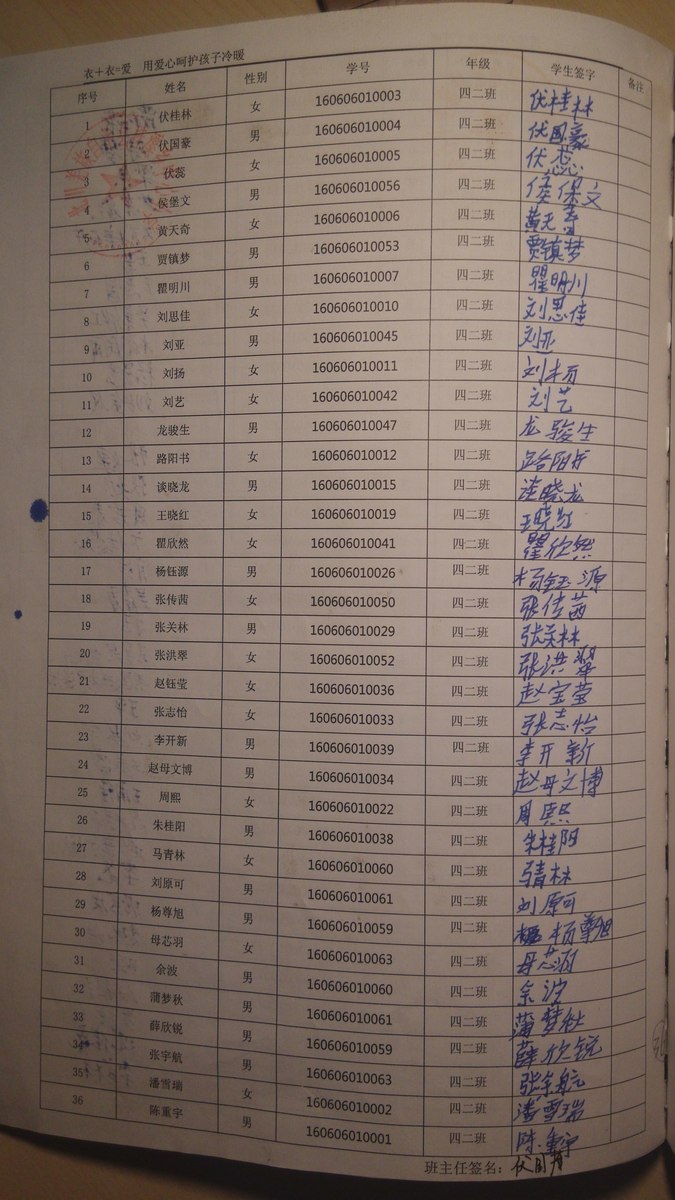 衣+衣=爱 用爱心呵护孩子冷暖
序号 姓名 性别 学号 年级 学生签字 备注
1 伏桂林 女 160606010003 四二班 伏桂林
2 伏国豪 男 160606010004 四二班 伏国豪
3 伏蕊 女 160606010005 四二班 伏蕊
4 侯堡文 男 160606010056 四二班 侯保文
5 黄天奇 女 160606010006 四二班 黄天奇
6 贾镇梦 男 160606010053 四二班 贾镇梦
7 瞿明川 男 160606010007 四二班 瞿明川
8 刘思佳 女 160606010010 四二班 刘思佳
9 刘亚 男 160606010045 四二班 刘亚
10 刘扬 女 160606010011 四二班 刘杨
11 刘艺 女 160606010042 四二班 刘艺
12 龙骏生 男 160606010047 四二班 龙骏生
13 路阳书 女 160606010012 四二班 路阳书
14 谈晓龙 男 160606010015 四二班 谈晓龙
15 王晓红 女 160606010019 四二班 王晓红
16 瞿欣然 女 160606010041 四二班 瞿欣然
17 杨钰源 男 160606010026 四二班 杨钰源
18 张传茜 女 160606010050 四二班 张传茜
19 张关林 男 160606010029 四二班 张关林
20 张洪翠 女 160606010052 四二班 张洪翠
21 赵钰莹 女 160606010036 四二班 赵宝莹
22 张志怡 女 160606010033 四二班 张志怡
23 李开新 男 160606010039 四二班 李开新
24 赵母文博 男 160606010034 四二班 赵母文博
25 周熙 女 160606010022 四二班 周熙
26 朱桂阳 男 160606010038 四二班 朱桂阳
27 马青林 女 160606010060 四二班 马青林
28 刘原可 男 160606010061 四二班 刘原可
29 杨尊旭 男 160606010059 四二班 杨尊旭
30 母芯羽 女 160606010063 四二班 母芯
31 余波 男 160606010060 四二班 余波
32 蒲梦秋 男 160606010061 四二班 蒲梦秋
33 薛欣锐 男 160606010059 四二班 薛欣锐
34 张宇航 男 160606010063 四二班 张宇航
35 潘雪瑞 女 160606010002 四二班 潘雪瑞
36 陈重宇 男 160606010001 四二班 陈重宇
班主任签名：伏国